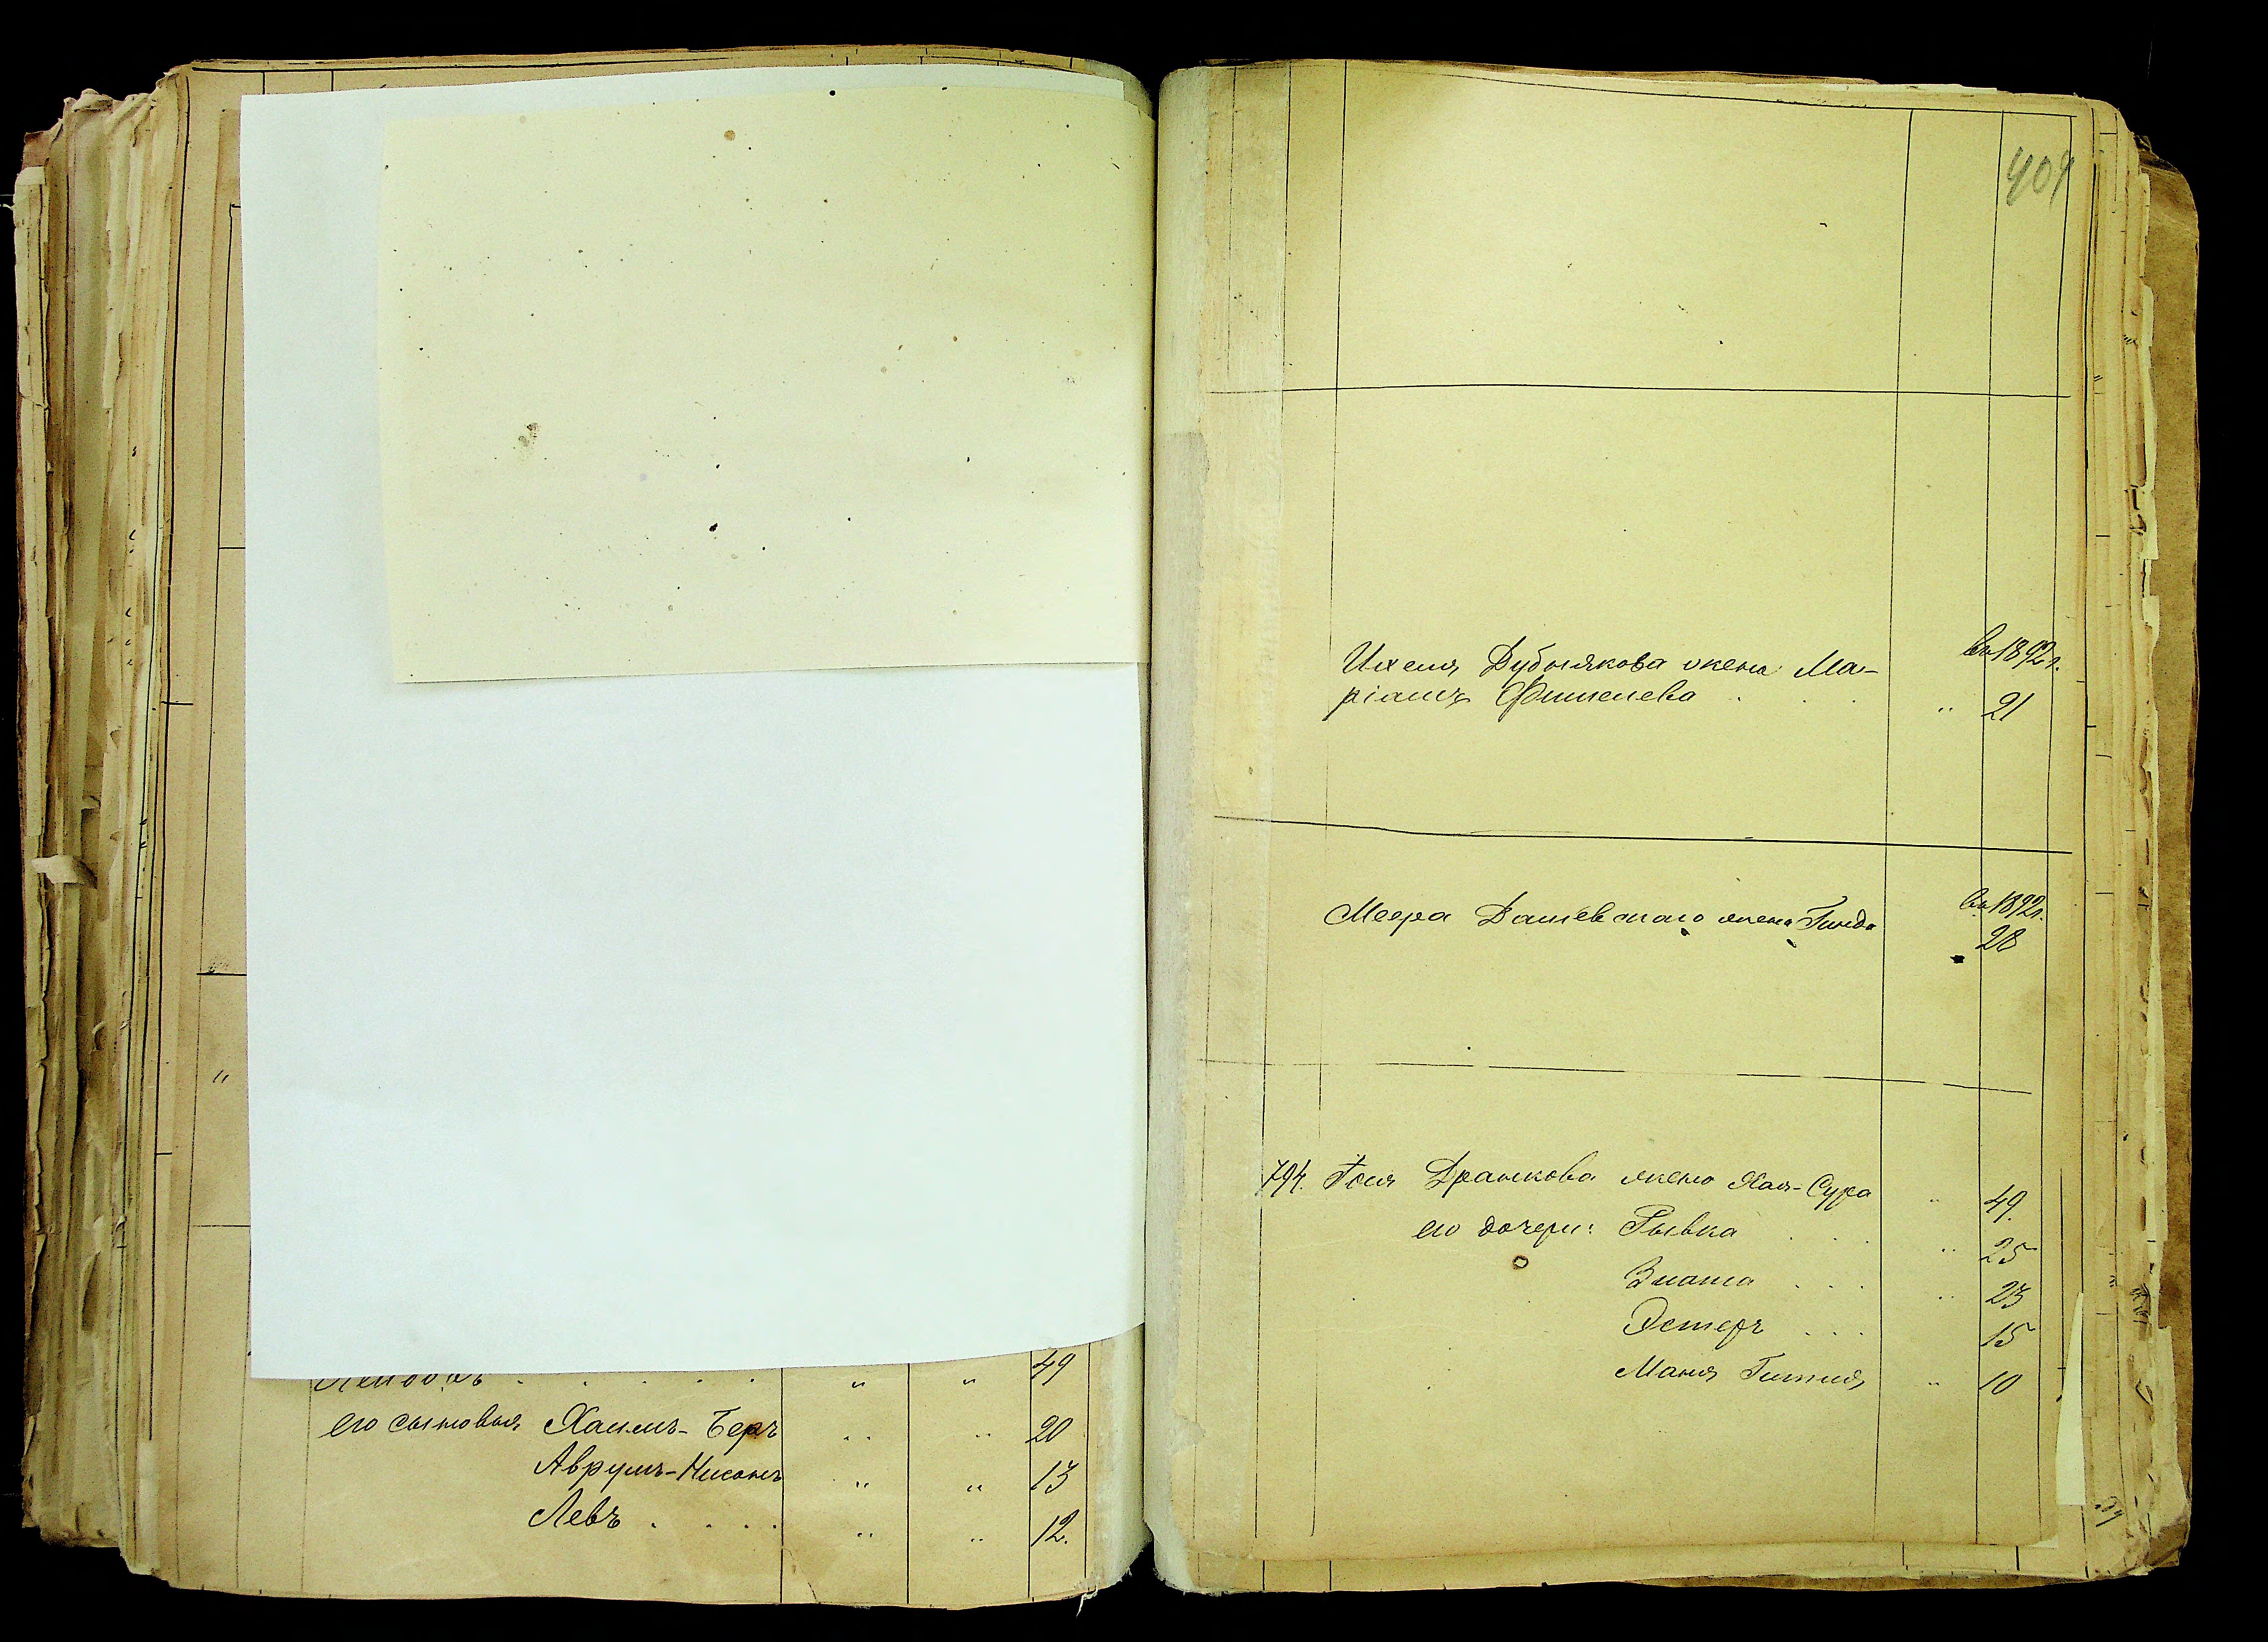 49
его сыновья Хаимъ-Беръ " " 20
Аврумъ-Нисонъ " " 13
Левъ . . . . " " 12.
въ 1892 г.
Ихеля Дубнякова жена Ма-
ріамъ Фишелева . . . " 21
въ 1892 г.
Меера Дашевскаго жена Гинда
28
794. Гоя Дранкова жена Хая-Сура " 49.
его дочери: Рывка . . . " 25
Злата . . . " 23
Эстеръ . . . 15
Маня Гитля " 10